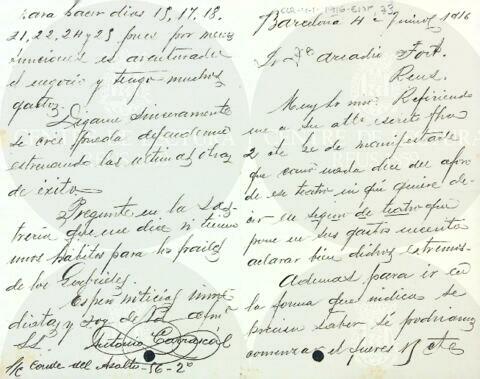 Barcelona 4 de Junio de 1916
Sr. Dn. Arcadio Fort.
Reus.
Muy Sr mio: Refiriendo
me a su atta escrito fha
2 cte he de manifestarle
que como nada dice del aforo
de ese teatro ni qué quiere de-
cir en seguro de teatro que
pone en sus gastos necesito
aclarar bien dichos extremos.
Ademas para ir en
la forma que indica se
precisa saber si podriamos
comenzar el jueves 15 cte
para hacer dias 15, 17, 18,
21, 22, 24 y 25 pues por menos
funciones es aventurado
el negocio y tengo muchos
gastos
Digame sinceramente
si cree pueda defenderme
estrenando las ultimas obras
de éxito.
Pregunte en la Sas-
treria que me dice si tienen
unos hábitos para los frailes
de los Gavilanes.
Espero noticias inme
diatas y soy de Vd afmo
SS.
Antonio Carrascal
S/C Conde del Asalto-56-2º